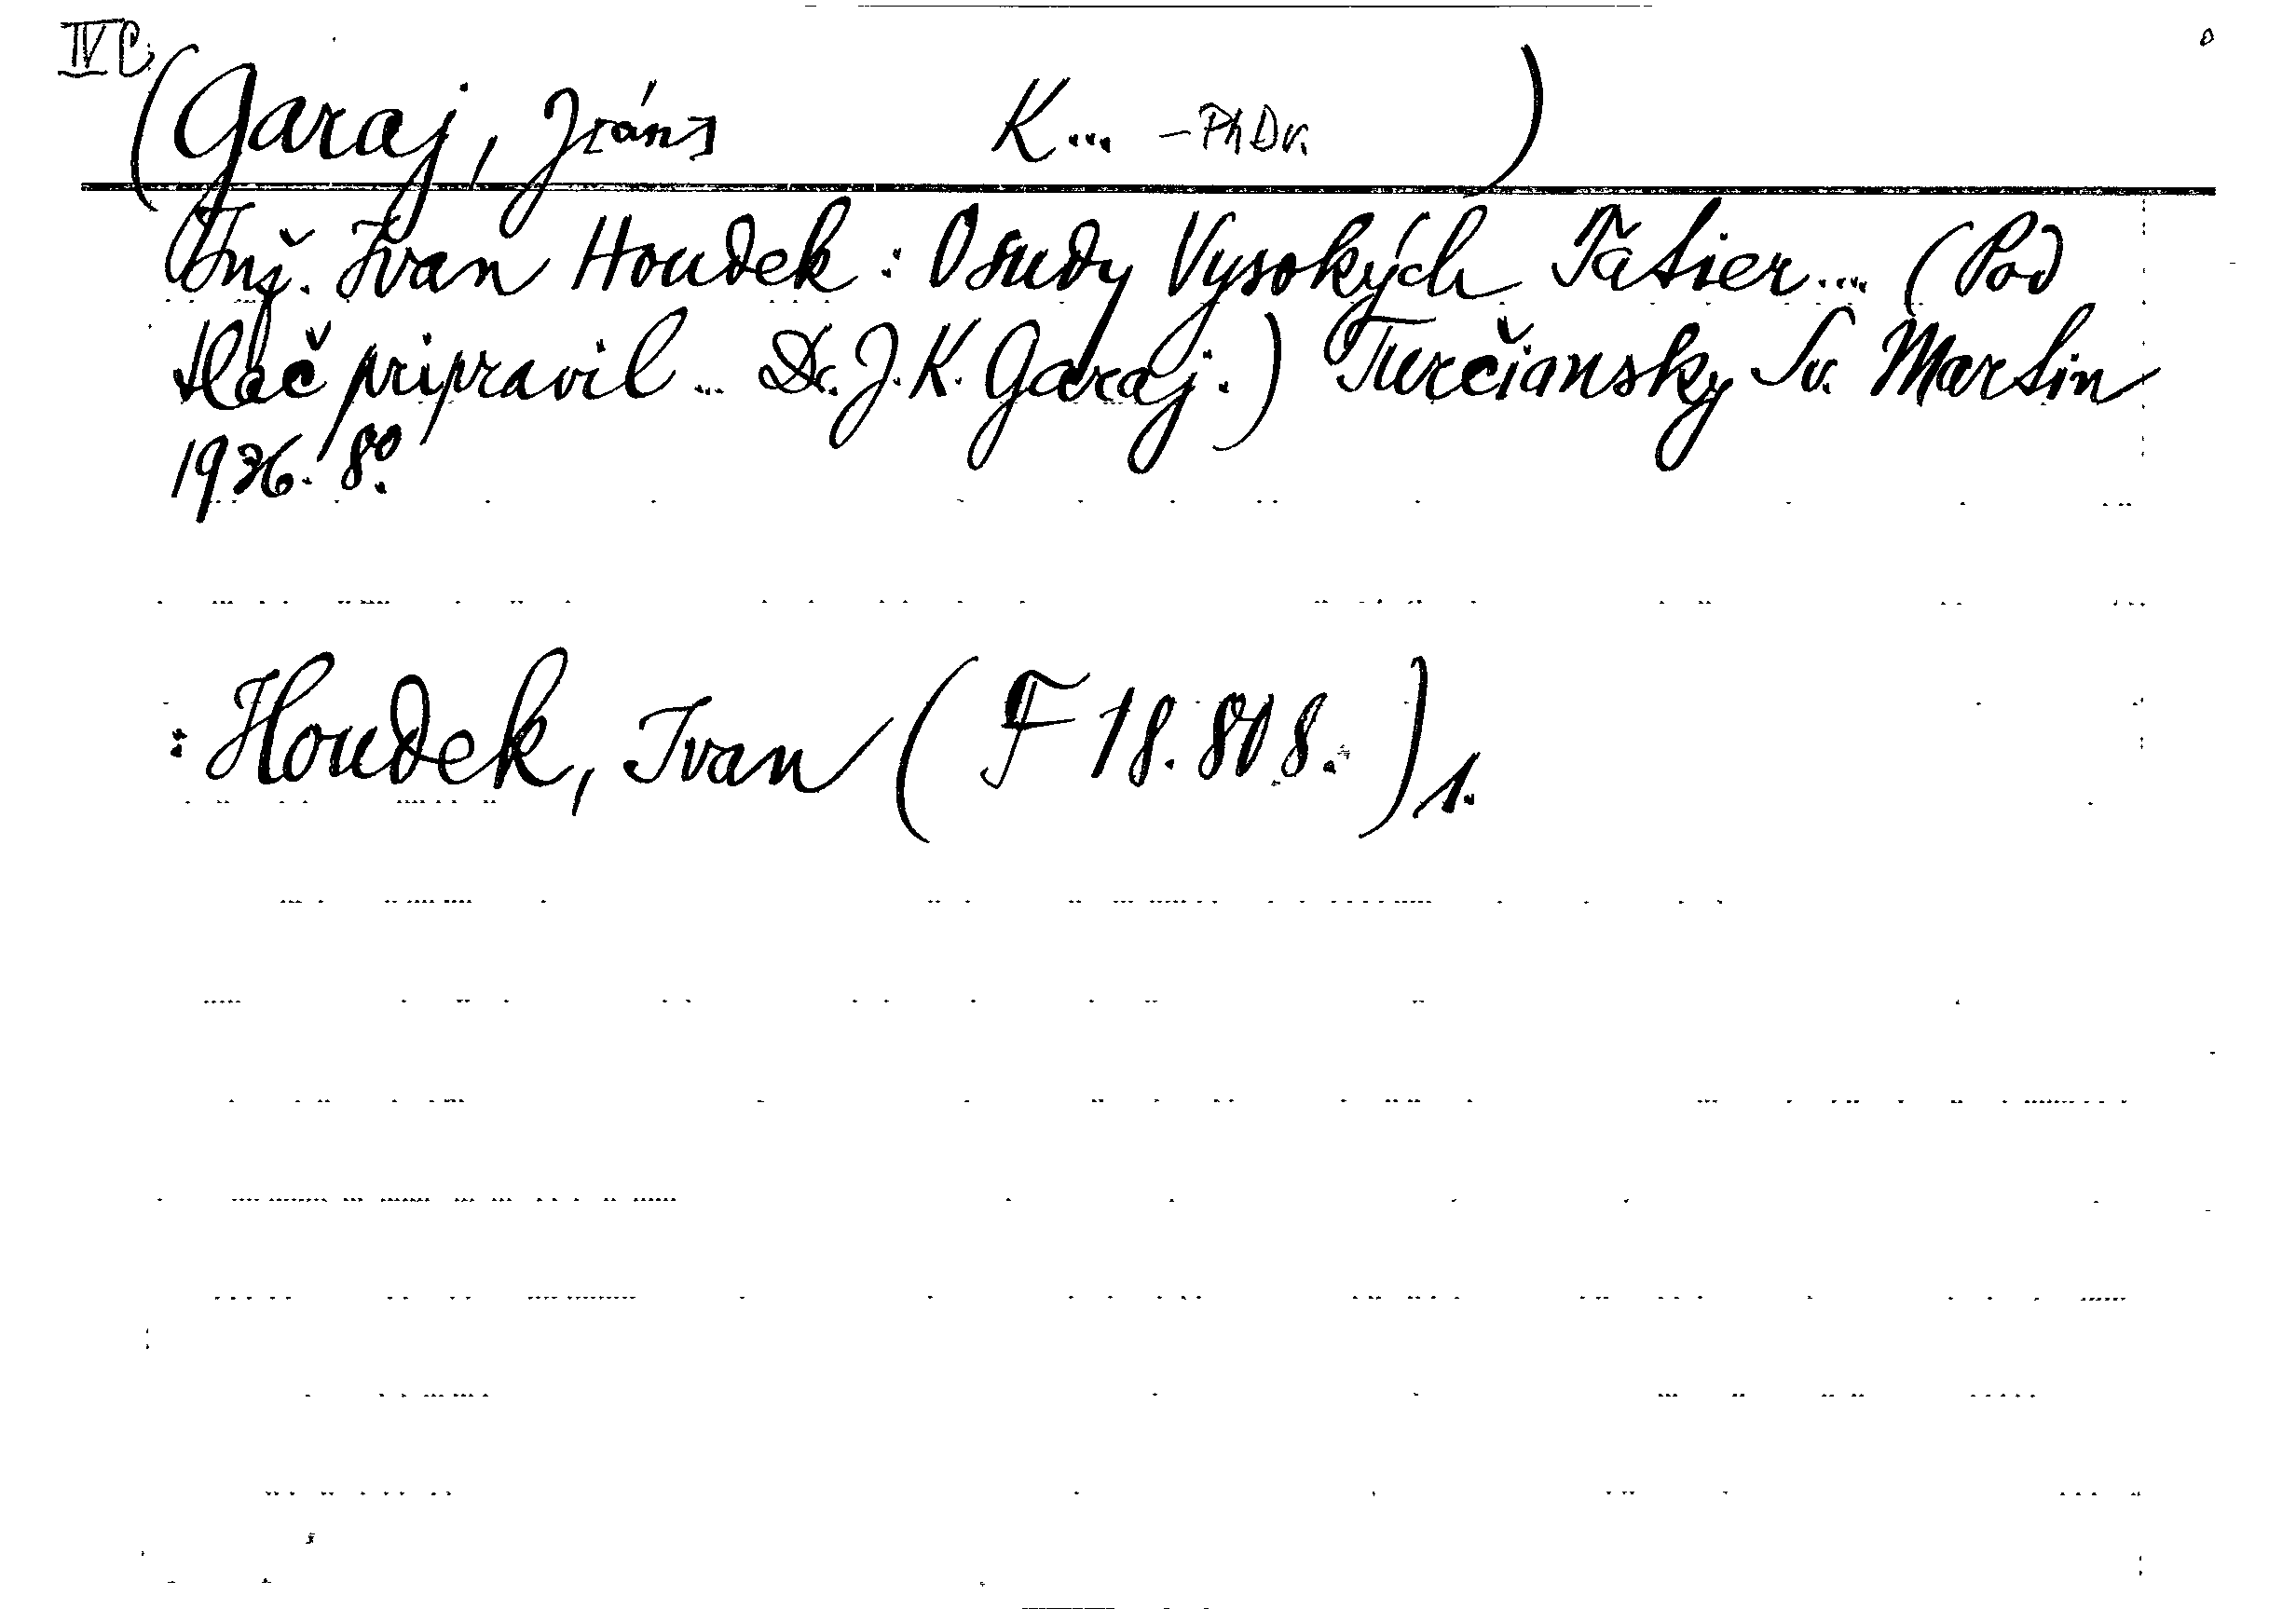 IV C
(Garaj, J[án] K... – PhDr. )
Inž. Ivan Houdek: Osudy Vysokých Tatier... (Pod
tlač pripravil... Dr. J. K. Garaj.) Turčiansky Sv. Martin
1936. 8°.
: Houdek, Ivan (F 18.808.) 1.